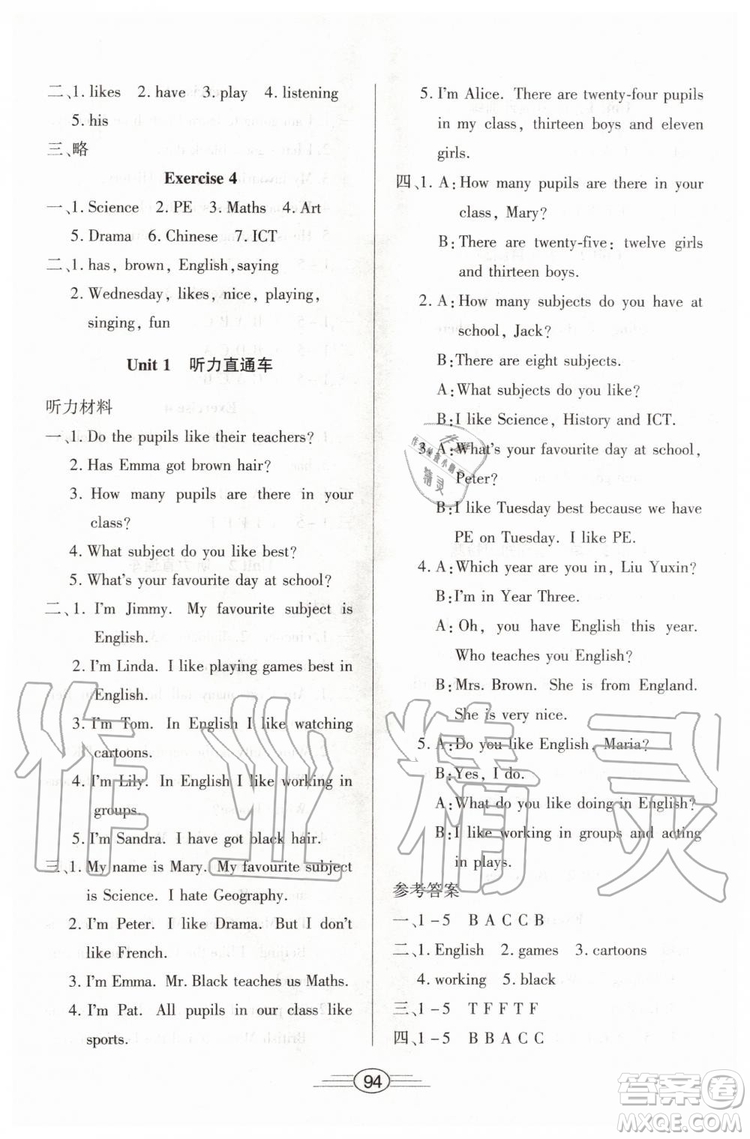 二、1. likes 2. have 3. play 4. listening
5. his
三、略
Exercise 4
一、1. Science 2. PE 3. Maths 4. Art
5. Drama 6. Chinese 7. ICT
二、1. has, brown, English, saying
2. Wednesday, likes, nice, playing,
singing, fun
Unit 1 听力直通车
听力材料
一、1. Do the pupils like their teachers?
2. Has Emma got brown hair?
3. How many pupils are there in your
class?
4. What subject do you like best?
5. What's your favourite day at school?
二、1. I'm Jimmy. My favourite subject is
English.
2. I'm Linda. I like playing games best in
English.
3. I'm Tom. In English I like watching
cartoons.
4. I'm Lily. In English I like working in
groups.
5. I'm Sandra. I have got black hair.
三、1. My name is Mary. My favourite subject
is Science. I hate Geography.
2. I'm Peter. I like Drama. But I don't
like French.
3. I'm Emma. Mr. Black teaches us Maths.
4. I'm Pat. All pupils in our class like
sports.
5. I'm Alice. There are twenty-four pupils
in my class, thirteen boys and eleven
girls.
四、1. A: How many pupils are there in your
class, Mary?
B: There are twenty-five: twelve girls
and thirteen boys.
2. A: How many subjects do you have at
school, Jack?
B: There are eight subjects.
A: What subjects do you like?
B: I like Science, History and ICT.
3. A: What's your favourite day at school,
Peter?
B: I like Tuesday best because we have
PE on Tuesday. I like PE.
4. A: Which year are you in, Liu Yuxin?
B: I'm in Year Three.
A: Oh, you have English this year.
Who teaches you English?
B: Mrs. Brown. She is from England.
She is very nice.
5. A: Do you like English, Maria?
B: Yes, I do.
A: What do you like doing in English?
B: I like working in groups and acting
in plays.
参考答案
一、1-5 B A C C B
二、1. English 2. games 3. cartoons
4. working 5. black
三、1-5 T F F T F
四、1-5 B B A C C
94
作业精灵
答案圈
MXQE.COM